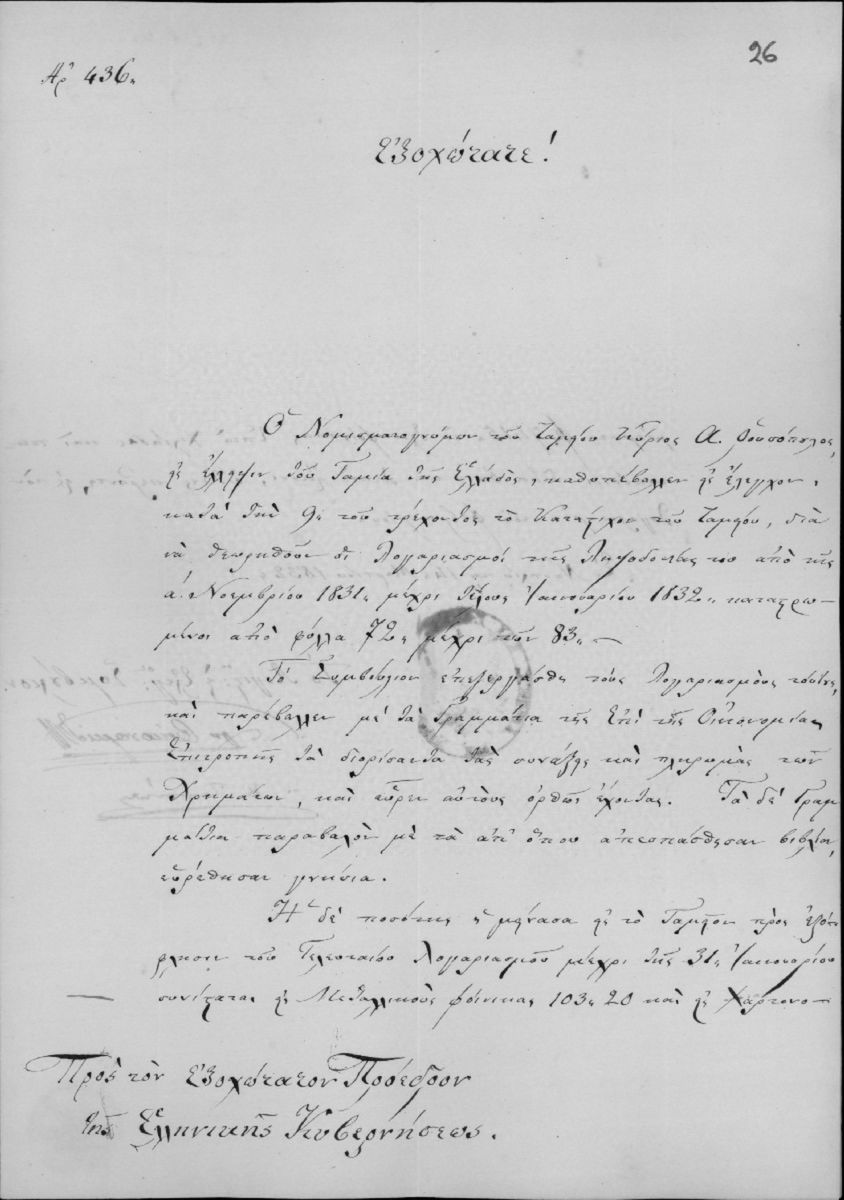 26
Αρ 436.
Ἐξοχώτατε!
Ὁ Νομισματογνώμων τοῦ ταμείου Κύριος Α. Ῥουσόπολος,
εἰς ἔλλειψιν τοῦ Ταμία τῆς Ἑλλάδος, καθυπέβαλλεν εἰς ἔλεγχον,
κατὰ τὴν 9 τοῦ τρέχοντος τὸ Κατάστιχον τοῦ ταμείου, διὰ
νὰ θεωρηθοῦν οἱ λογαριασμοί τῆς ληψοδοσίας του ἀπὸ τῆς
ά. Νοεμβρίου 1831. μέχρι τέλους Ἰανουαρίου 1832. καταστρω-
μένοι ἀπὸ φύλλα 72. μέχρι τῶν 83.—
Τὸ Συμβούλιον ἐπεξεργάσθη τοὺς λογαριασμοὺς τούτους,
καὶ παρέβαλλεν μὲ τὰ Γραμμάτια τῆς Ἐπὶ τῆς Οἰκονομίας
Ἐπιτροπῆς τὰ διορίσαντα τὰς συνάξεις καὶ πληρωμὰς τῶν
Χρημάτων, καὶ εὗρεν αὐτοὺς ὀρθῶς ἔχοντας. Τὰ δὲ Γραμ
μάτια παραβαλὸν μὲ τὰ ἀπ' ὅπου ἀπεσπάσθησαν βιβλία,
εὑρέθησαν γνήσια.
Ἡ δὲ ποσότης ἡ μείνασα εἰς τὸ Ταμεῖον πρὸς ἐξό-
φλησιν τοῦ Τελευταίου λογαριασμοῦ μέχρι τῆς 31. Ἰανουαρίου
συνίσταται εἰς Μεταλλικοὺς φοίνικας 103. 20 καὶ εἰς Χαρτονο-
Πρὸς τὸν Ἐξοχώτατον Πρόεδρον
τῆς Ἑλληνικῆς Κυβερνήσεως.